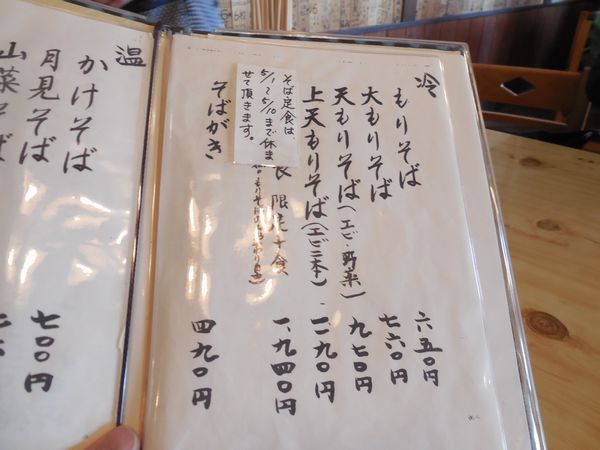 冷
もりそば 六五〇円
大もりそば 七六〇円
天もりそば(エビ・野菜) 九七〇円
上天もりそば(エビ二本) 一、一九〇円
限定十食 一、九四〇円
そば定食は
5/1～5/10まで休ま
せて頂きます。
そばがき 四九〇円
温
かけそば
月見そば 七〇〇円
山菜そば